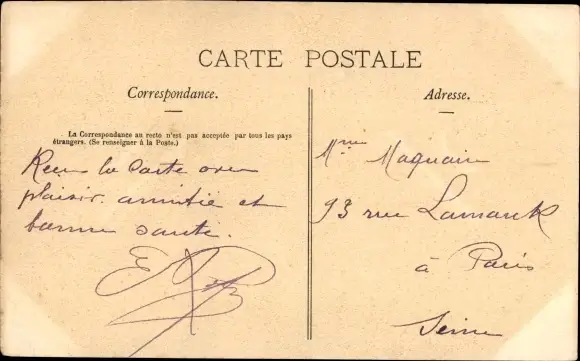 CARTE POSTALE
Correspondance.
Adresse.
La Correspondance au recto n'est pas acceptée par tous les pays
étrangers. (Se renseigner à la Poste.)
Reçu la carte avec
plaisir. amitié et
bonne santé.
Mme Maquain
93 rue Lamarck
à Paris
Seine